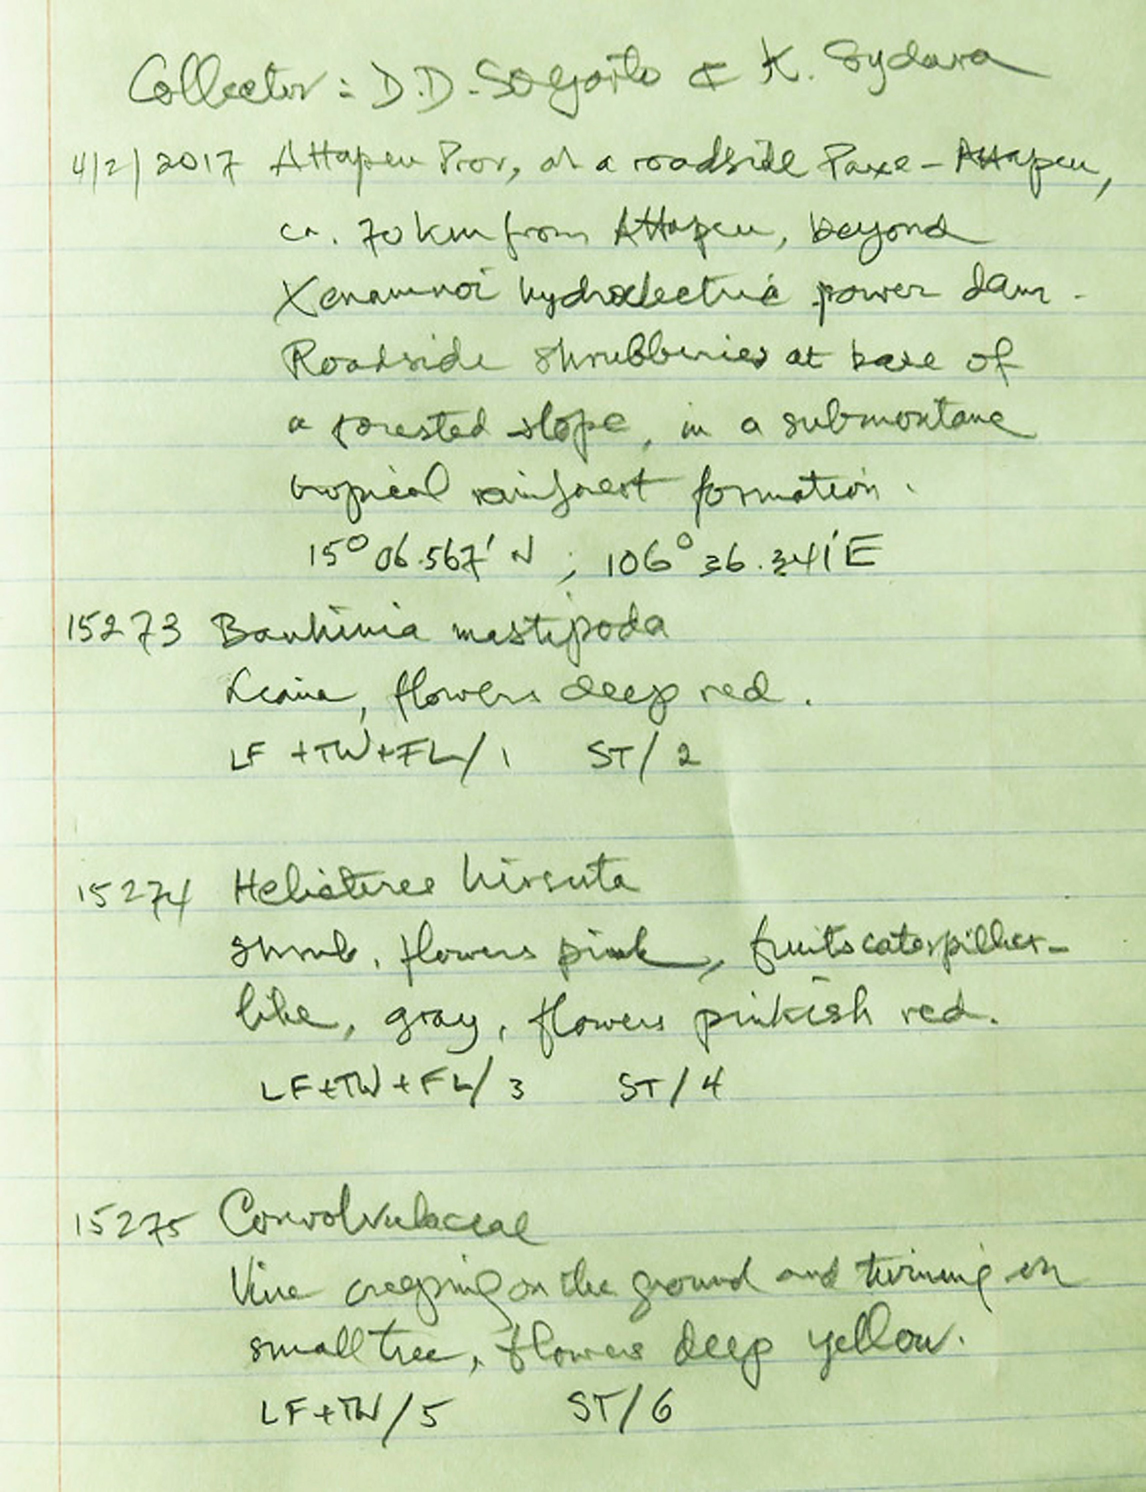 Collector: D.D. Soejarto & K. Sydara
4/2/2017 Attapeu Prov, at a roadside Paxe - Attapeu,
ca. 70 km from Attapeu, beyond
Xenamnoi hydroelectric power dam.
Roadside shrubberies at base of
a forested slope, in a submontane
tropical rainforest formation.
15° 06.567' N ; 106° 36.341' E
15273 Bauhinia mastipoda
Liana, flowers deep red.
LF + TW + FL / 1 ST / 2
15274 Helicteres hirsuta
Shrub, flowers pink, fruits caterpiller-
like, gray, flowers pinkish red.
LF + TW + FL / 3 ST / 4
15275 Convolvulaceae
Vine creeping on the ground and twining on
small tree, flowers deep yellow.
LF + TW / 5 ST / 6